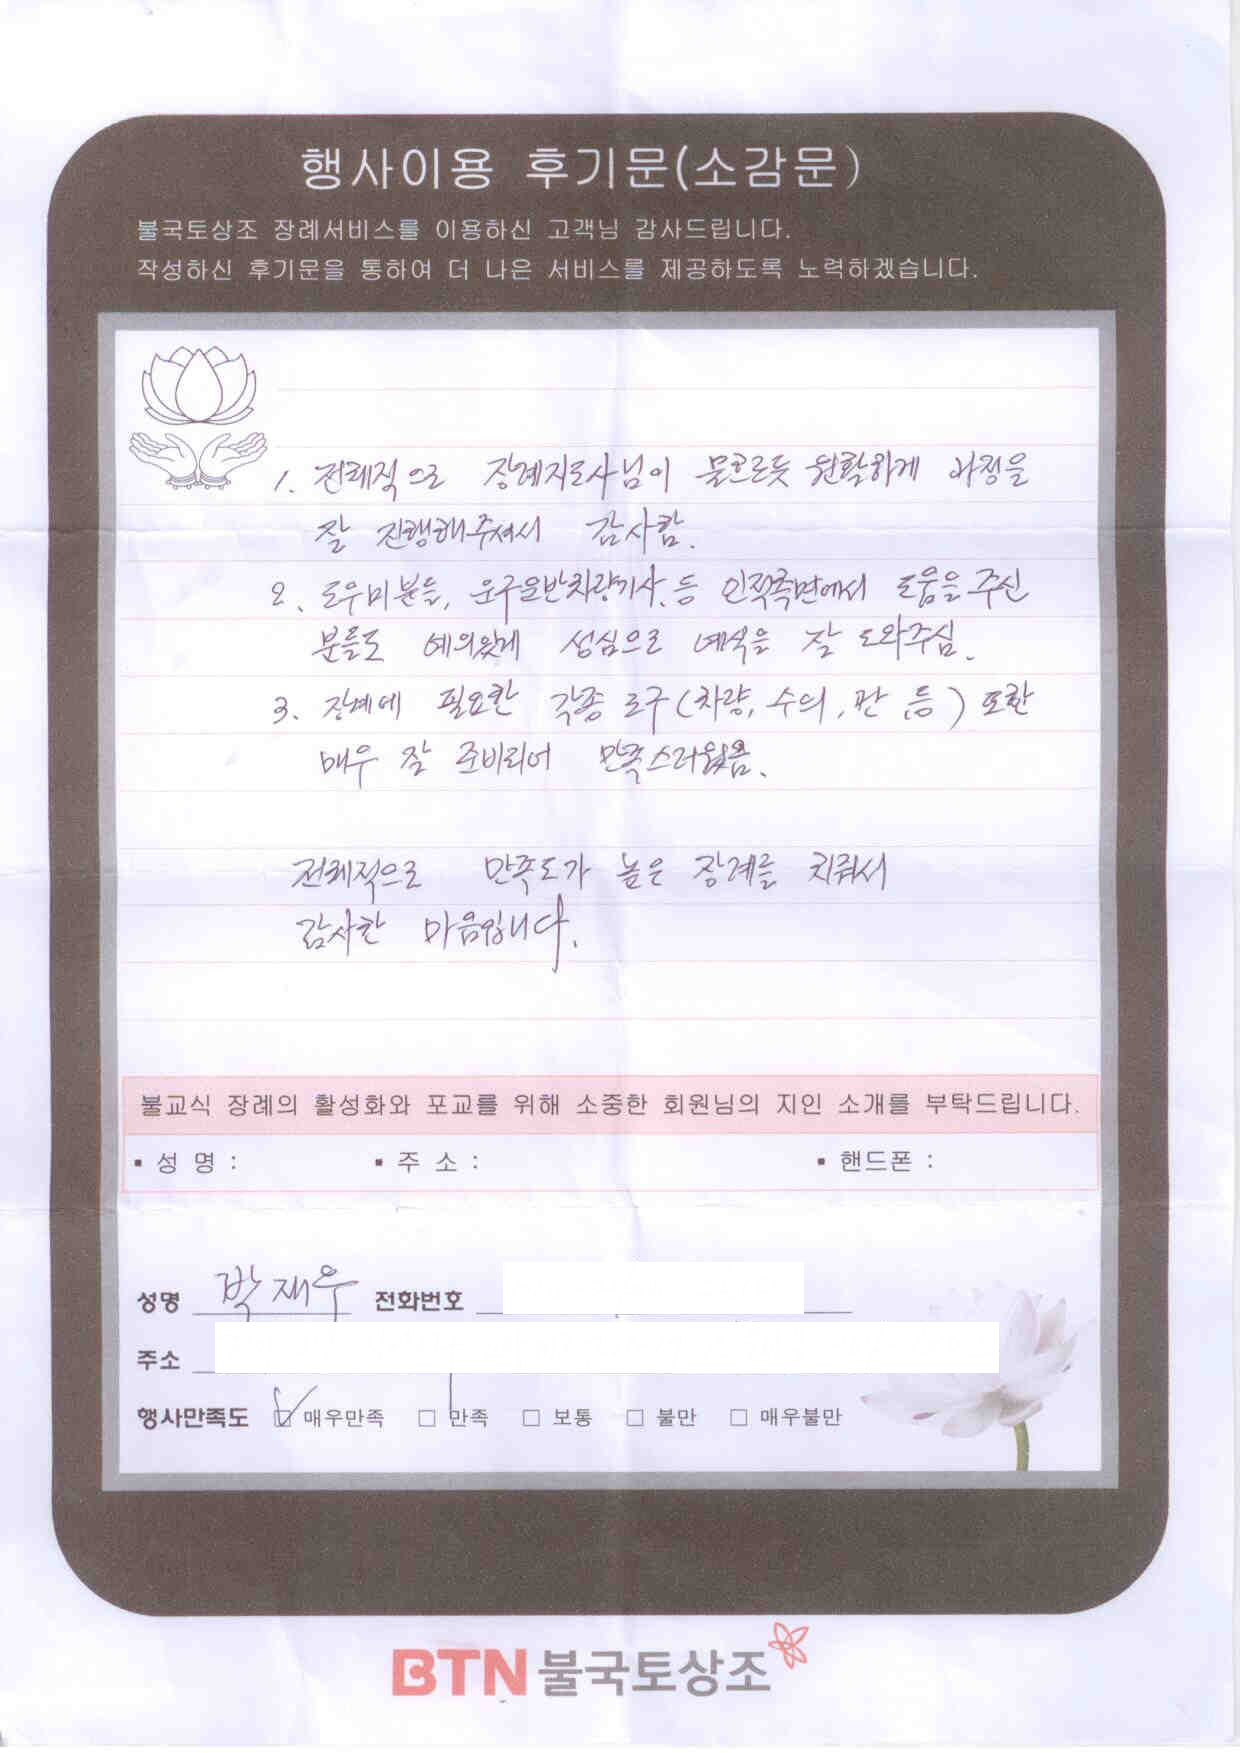 행사이용 후기문(소감문)
불국토상조 장례서비스를 이용하신 고객님 감사드립니다.
작성하신 후기문을 통하여 더 나은 서비스를 제공하도록 노력하겠습니다.
1. 전체적으로 장례지도사님이 물흐르듯 원활하게 과정을
잘 진행해주셔서 감사함.
2. 도우미분들, 운구운반차량기사, 등 인적측면에서 도움을 주신
분들도 예의있게 성심으로 예식을 잘 도와주심.
3. 장례에 필요한 각종 도구(차량, 수의, 관, 등) 또한
매우 잘 준비되어 만족스러웠음.
전체적으로 만족도가 높은 장례를 치뤄서
감사한 마음입니다.
불교식 장례의 활성화와 포교를 위해 소중한 회원님의 지인 소개를 부탁드립니다.
▪ 성 명 : ▪ 주 소 : ▪ 핸드폰 :
성명 박재우 전화번호
주소
행사만족도 ☑ 매우만족 □ 만족 □ 보통 □ 불만 □ 매우불만
BTN 불국토상조